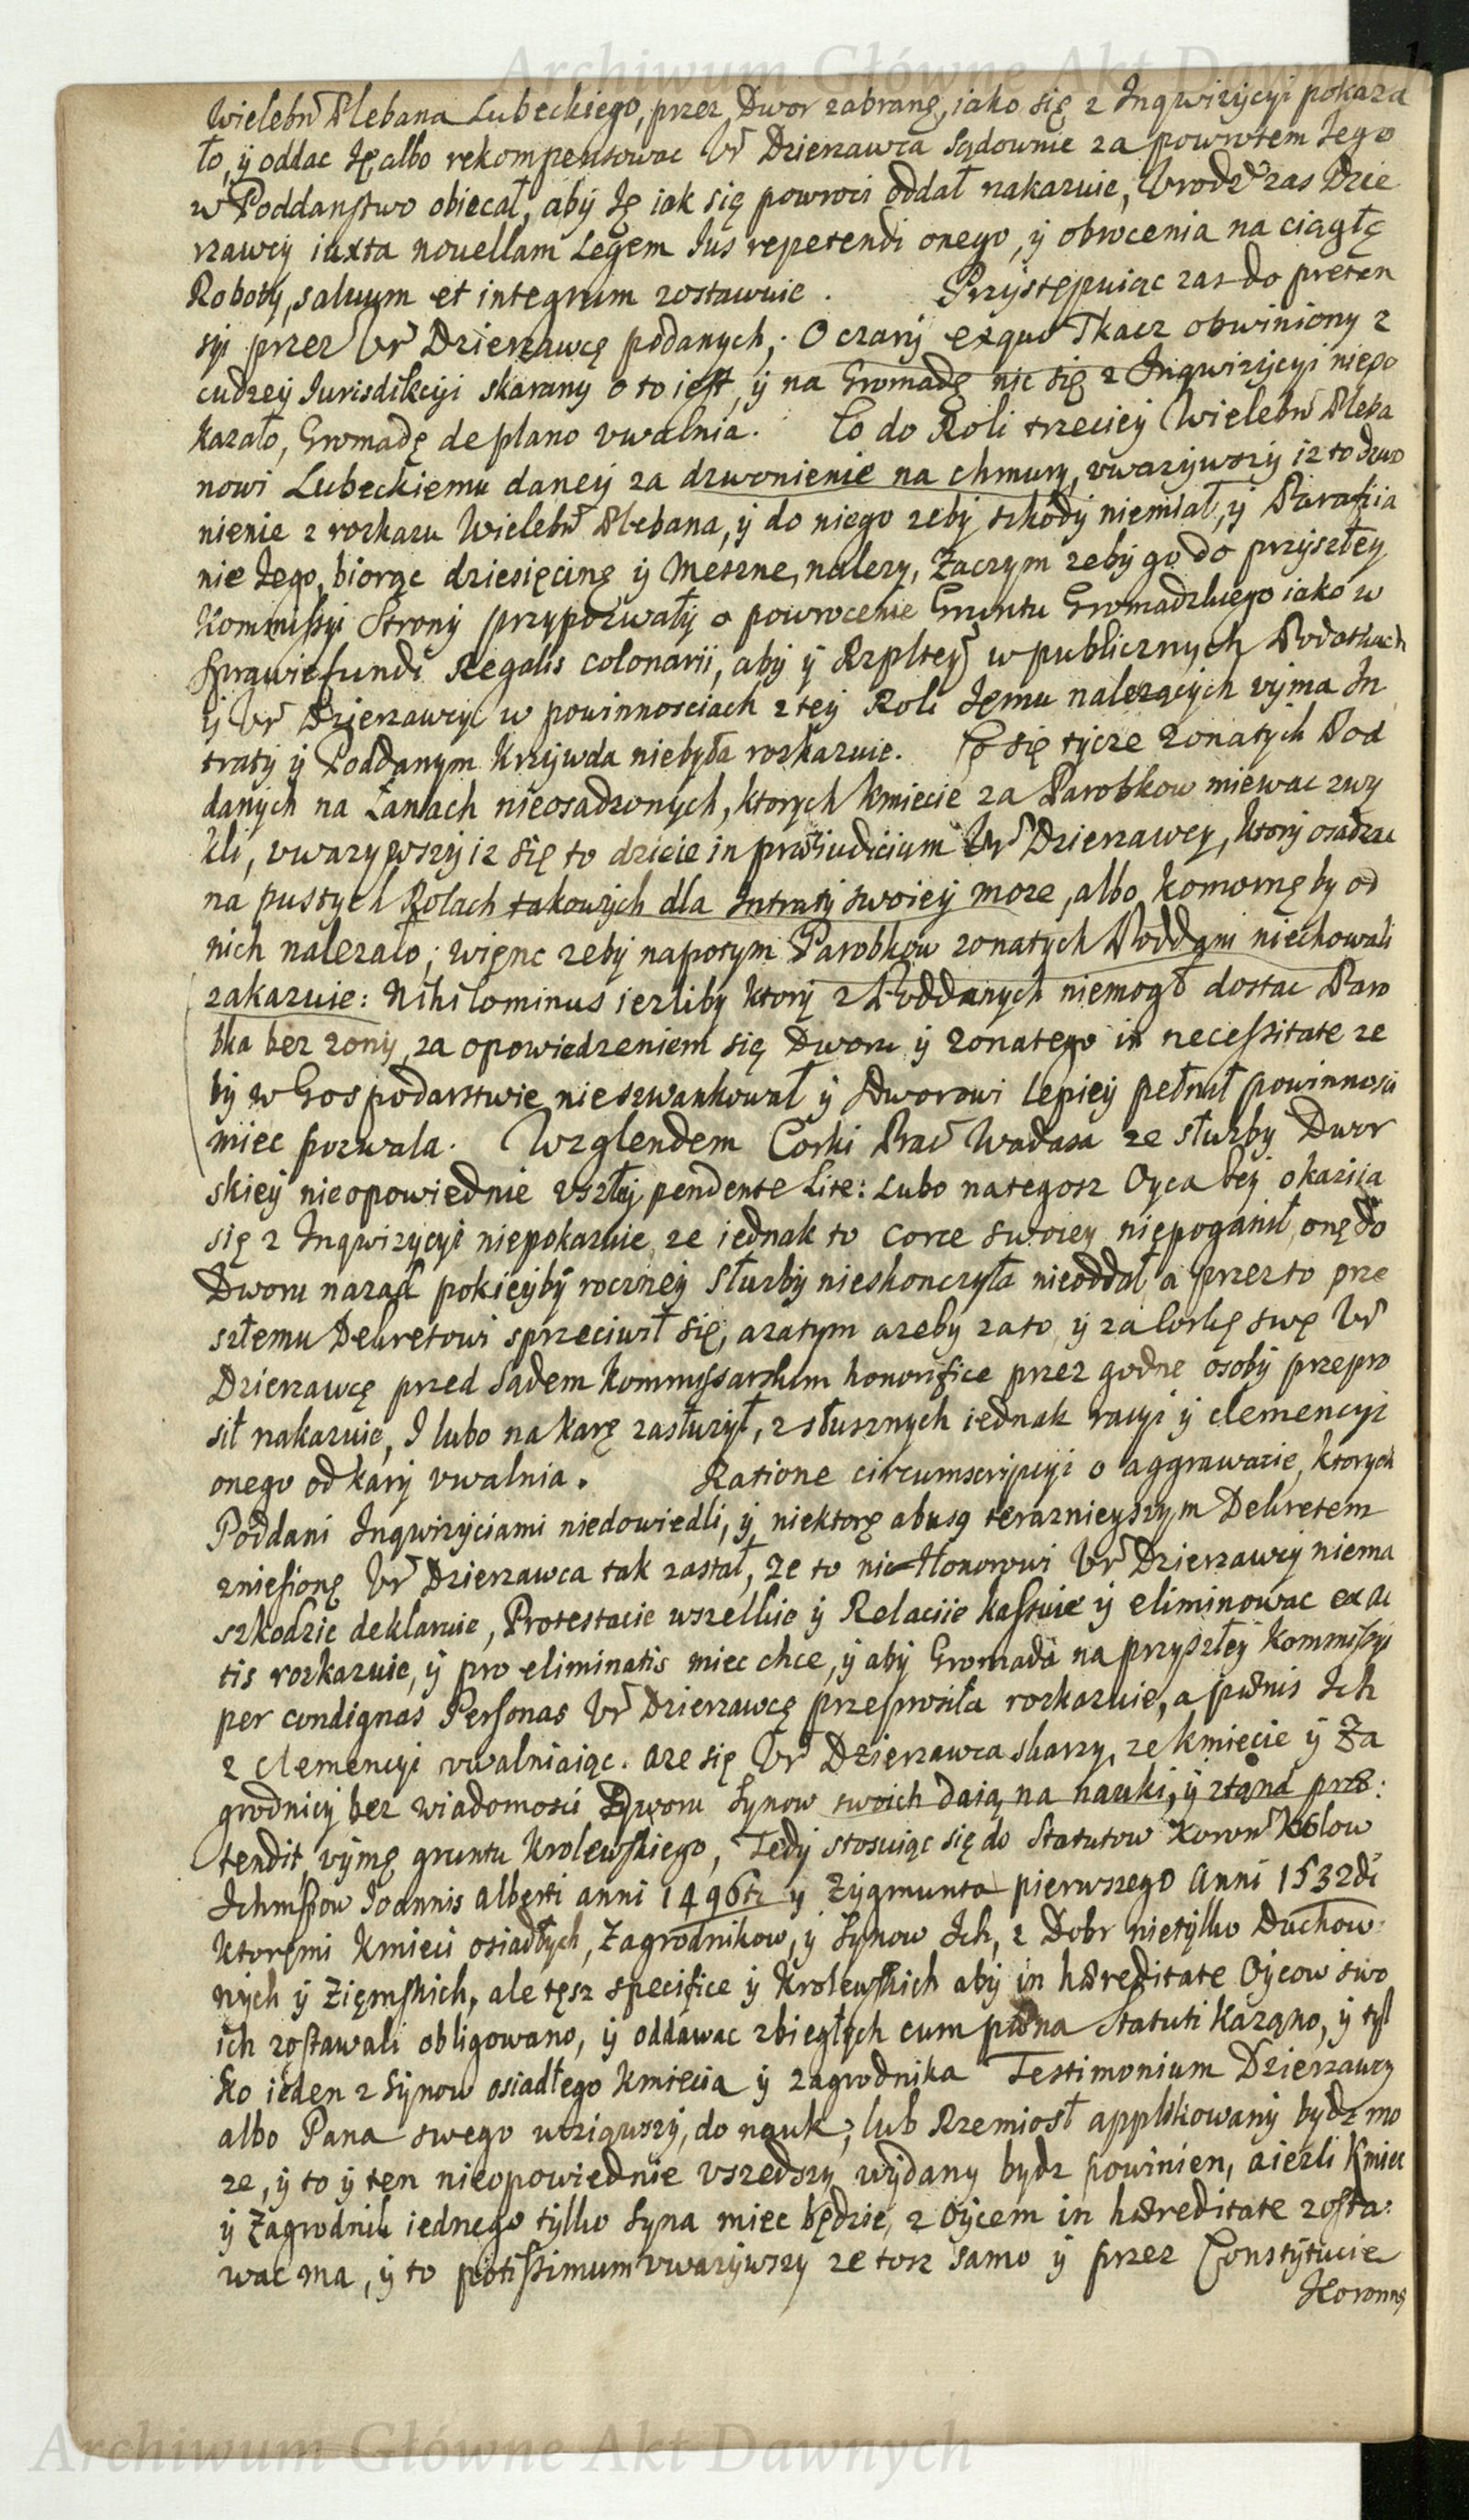 Archiwum Główne Akt Dawnych
Wielebń Plebana Lubeckiego, przez Dwor zabranę, iako się z Inqwizycyi pokaza
ło, ÿ oddac Ię albo rekompensowac Vr Dzierzawca Sądownie za powrotem Iego
w Poddanstwo obiecał, aby Ię iak się powroci oddał nakazuie, Vrodz zas Dzie
rzawcÿ iuxta nouellam Legem Ius repetendi onego, ÿ obrocenia na ciągłę
Robotÿ, saluum et integrum zostawuie. Przÿstępuiąc zas do preten
syi przez Vr Dzierzawcę podanych; O czarÿ exquo Tkacz obwiniony z
cudzeÿ Iurisdikcyi skarany o to iest, ÿ na Gromadę nic się z Inqwizycyi niepo
kazało, Gromadę de plano vwalnia. Co do Roli trzecieÿ Wielebń Pleba
nowi Lubeckiemu daneÿ za dzwonienie na chmury, vwazÿwszÿ iz to dzwo
nienie z rozkazu Wielebń Plebana, ÿ do niego zebÿ szkodÿ niemiał, ÿ Parafiia
nie Iego, biorąc dziesięcinę ÿ Meszne, nalezy, Zaczym zebÿ go do przÿszłeÿ
Kommissyi Stronÿ przÿpozwałÿ o powrocenie Gruntu Gromadzkiego iako w
Sprawie fundi Regalis colonarii, abÿ ÿ Rzpltey w publicznych Podatkach
ÿ Vr Dzierzawcy w powinnosciach z teÿ Roli Iemu nalezącÿch vÿma In
tratÿ ÿ Poddanym Krzÿwda niebyła rozkazuie. Co się tÿcze zonatÿch Pod
danÿch na Łanach nieosadzonych, ktorych kmiecie za Parobkow miewac zwy
kli, vwazywszÿ iz się to dzieie in præiudicium Vr Dzierzawcy, ktorÿ osadzac
na pustych Rolach takowÿch dla Intratÿ swoieÿ moze, albo komornę by od
nich nalezało; więnc zebÿ napotym Parobkow zonatych Poddani niechowali
zakazuie: Nihilominus iezliby ktorÿ z Poddanych niemogł dostac Paro
bka bez zonÿ, za opowiedzeniem się Dworu ÿ zonatego in necessitate ze
bÿ w Gospodarstwie nieszwankował ÿ Dworowi lepieÿ pełnił powinnosci
miec pozwala. Wzglendem Corki Prac Wadasa ze służby Dwor
skieÿ nieopowiednie vszłeÿ pendente Lite: Lubo nategosz Oyca teÿ okaziia
się z Inqwizycyi niepokazuie, ze iednak to Corce swoiey nieponganił, onę do
Dworu nazad pokieÿbÿ roczneÿ służbÿ nieskonczyła nieoddał a przez to prze
szłemu Dekretowi sprzeciwił się, azatym azeby zato ÿ za Corkę swę Vr
Dzierzawcę przed Sądem Kommissarskim honorifice przez godne osobÿ przepro
sił nakazuie, I lubo na karę zasłużÿł, z słusznych iednak racyi ÿ clemencyi
onego od karÿ vwalnia. Ratione circumscripcyi o aggrawacie, ktorych
Poddani Inqwizÿciami niedowiedli, ÿ niektorę abusą terazniejszym Dekretem
zniesionę Vr Dzierzawca tak zastał, Ze to nic Honorowi Vr Dzierzawcÿ niema
szkodzic deklaruie, Protestacie wszelkie ÿ Relaciie kassuie ÿ eliminowac ex ac
tis rozkazuie, ÿ pro eliminatis miec chce, ÿ abÿ Gromada na przyszłeÿ Kommissyi
per condignas Personas Vr Dzierzawcę przeprosiła rozkazuie, a pænis Ich
z clemencyi vwalniaiąc. aze się Vr Dzierzawca skarzy, ze kmiecie ÿ Za
grodnicÿ bez wiadomosci Dworu Synow swoich daią na nauki, ÿ ztąnd præ:
tendit, vÿmę gruntu Krolewskiego, Tedÿ stosuiąc się do Statutow Koronn Krolow
Ichmsciow Ioannis alberti anni 1496ti ÿ Zÿgmunta pierwszego Anni 1532di
ktoremi kmieci osiadłÿch, Zagrodnikow, ÿ Synow Ich, z Dobr nietÿlko Duchow:
nÿch ÿ Ziemskich, ale tesz specifice ÿ Krolewskich abÿ in hæreditate Oÿcow swo
ich zostawali obligowano, ÿ oddawac zbiegłÿch cum pæna statuti kazano, ÿ tyl
ko ieden z Synow osiadłego Kmiecia ÿ zagrodnika Testimonium Dzierzawcy
albo Pana swego wziąwszÿ, do nauk, lub Rzemiosł applikowanÿ bÿdz mo
ze, ÿ to ÿ ten nieopowiednie vszedszy wÿdany bydz powinien, aiezli Kmiec
ÿ Zagrodnik iednego tÿlko Syna miec będzie, z Oÿcem in hæreditate zosta:
wac ma, ÿ to potissimum vwazÿwszy ze tosz samo ÿ przez Constÿtucie
Koronnę
Archiwum Główne Akt Dawnych